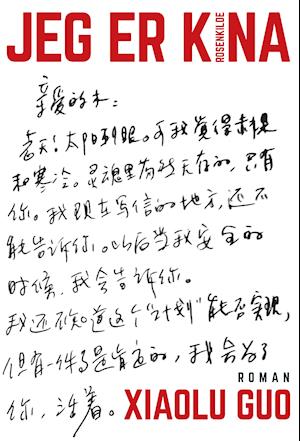 JEG ER KINA
ROSENKILDE
亲爱的木:
春天!太阳刺眼。可我觉得
和寒冷。灵魂里
你。我现在写信的地方,还不
能告诉你。以后当我安全的
时候,我会告诉你。
我还不知道这个“计划”能否实现,
但有一件事是肯定的,我会为了
你,活着。
ROMAN
XIAOLU GUO